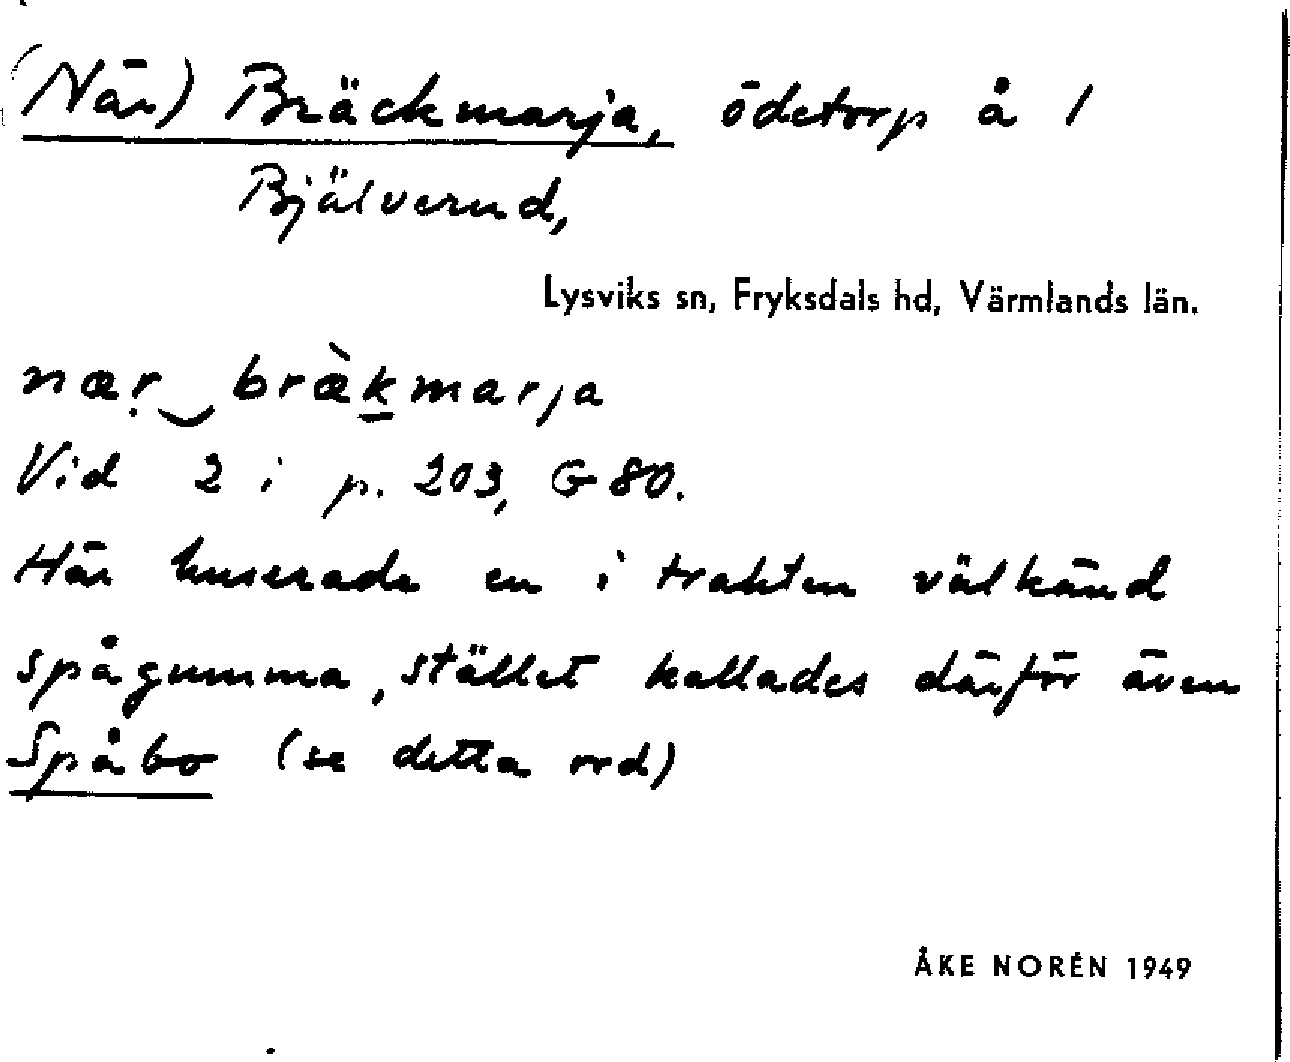 (När) Bräckmarja, ödetorp å 1
Bjälverud,
Lysviks sn, Fryksdals hd, Värmlands län.
næṛ‿bræ̀k̲marja
Vid 2 i p. 203, G 80.
Här huserade en i trakten välkänd
spågumma, stället kallades därför även
Spåbo (se detta ord)
ÅKE NORÉN 1949